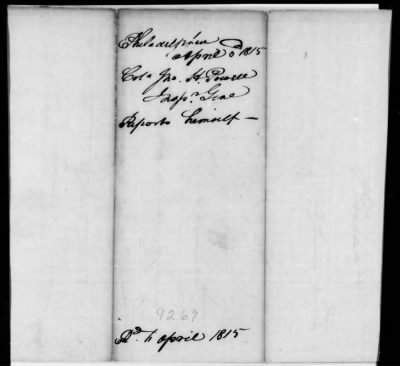 Philadelphia
April 1815
Colo Jno. H. Powell
Insp.r Genl
Reports himself —
9267
Rd. April 1815